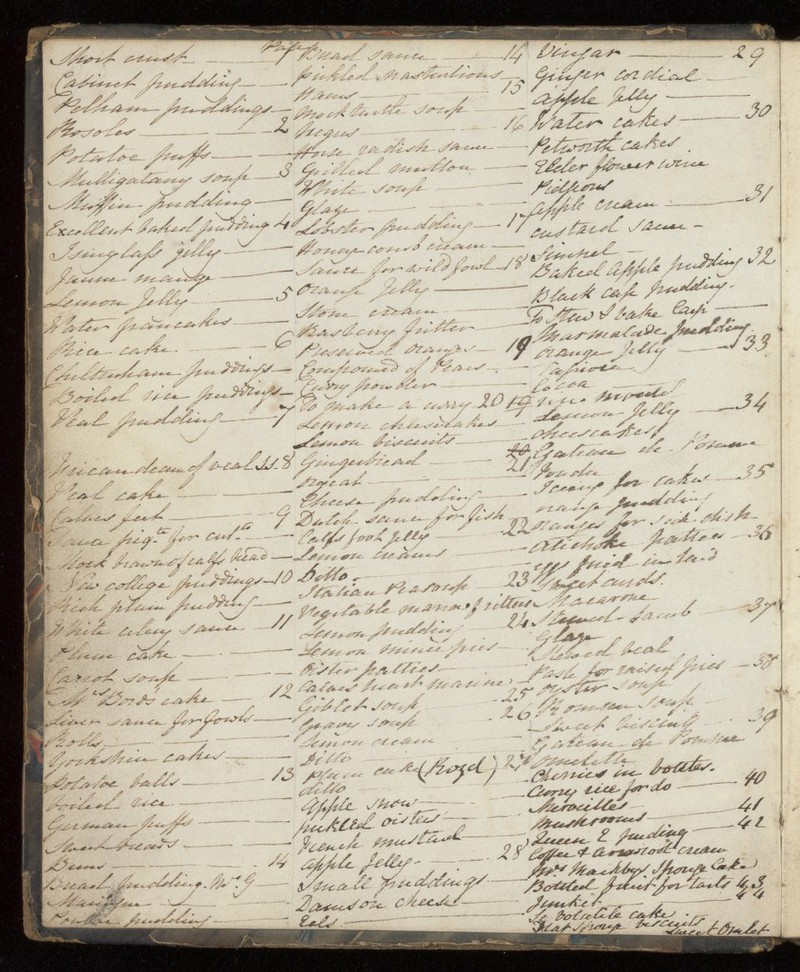 Page
Short crust
Cabinet pudding
Pelham puddings
Rosoles 2
Potatoe puffs
Mulligatany soup 3
Muffin pudding
Excellent baked pudding 4
Isinglass jelly
Jaune mange
Lemon Jelly 5
Water pancakes
Rice cake 6
Cheltenham puddings
Boiled rice puddings
Veal pudding 7
Fricandeau of veal 8
Veal cake
Calves feet 9
Sauce
Mock brawn of calfs head
New college puddings 10
Rich plum pudding
White celery sauce 11
Plum cake
Carrot soup
Mrs Bord's cake 12
Liver sauce for fowls
Rolls
Yorkshire cakes
Potatoe balls 13
boiled rice
German puffs
Sweetbreads
Buns 14
Bread pudding Mrs G
pudding
Bread sauce 14
pickled nasturtions
Hams 15
Mock turtle soup
Negus 16
Horse radish sauce
Grilled mutton
White soup
Glaze
Lobster pudding 17
Honey comb cream
Sauce for wild fowl 18
Orange Jelly
Stone cream
Rasberry fritter
Preserved oranges 19
Compound of Pears
Curry powder
To make a curry 20 19
Lemon cheesecakes
Lemon biscuits 20
Gingerbread 21
orgeat
Cheese pudding
Dutch sauce for fish
Calfs foot Jelly 22
Lemon creams
Ditto
Italian Peasoup 23
Vegetable marrow fritters
Lemon pudding 24
Lemon mince pies
Oister patties
Calves heart marine
Giblet soup 25
Gravy soup 26
Lemon cream
Ditto
Plum cake (Royd) 27
ditto
Apple snow
pickled oisters
French mustard
apple Jelly 28
Small puddings
Damson cheese
Eels
Vinegar 29
Ginger cordial
Apple Jelly
Water cakes 30
Petworth cakes
Elder flower wine
apple cream 31
custard sauce
Simnel
Baked Apple pudding 32
Black cap pudding
To stew & bake Carp
Marmalade pudding
orange Jelly 33
Tapioca
Cocoa
Lemon Jelly 34
cheesecakes
Gateau de Pomme
Fondu
Iceing for cakes 35
orange pudding
oranges for side dish
Atichoke pattees 36
eggs fried in lard
Sweet
Macarone
Stewed Lamb 37
Glaze
Stewed Veal
Paste for raised pies 38
oyster soup
soup
Sweet biscuit 39
Gateau de Pomme
omelette
Cherries in bottles
Curry rice for do 40
Merveilles 41
Mushrooms 42
Queen's pudding
Coffee & Arrowroot cream
Mrs Mackbys Sponge Cake
Bottled fruit for tarts 43
Junket 44
Sa volatile cake
Flat Sponge biscuits
Sweet Omelet